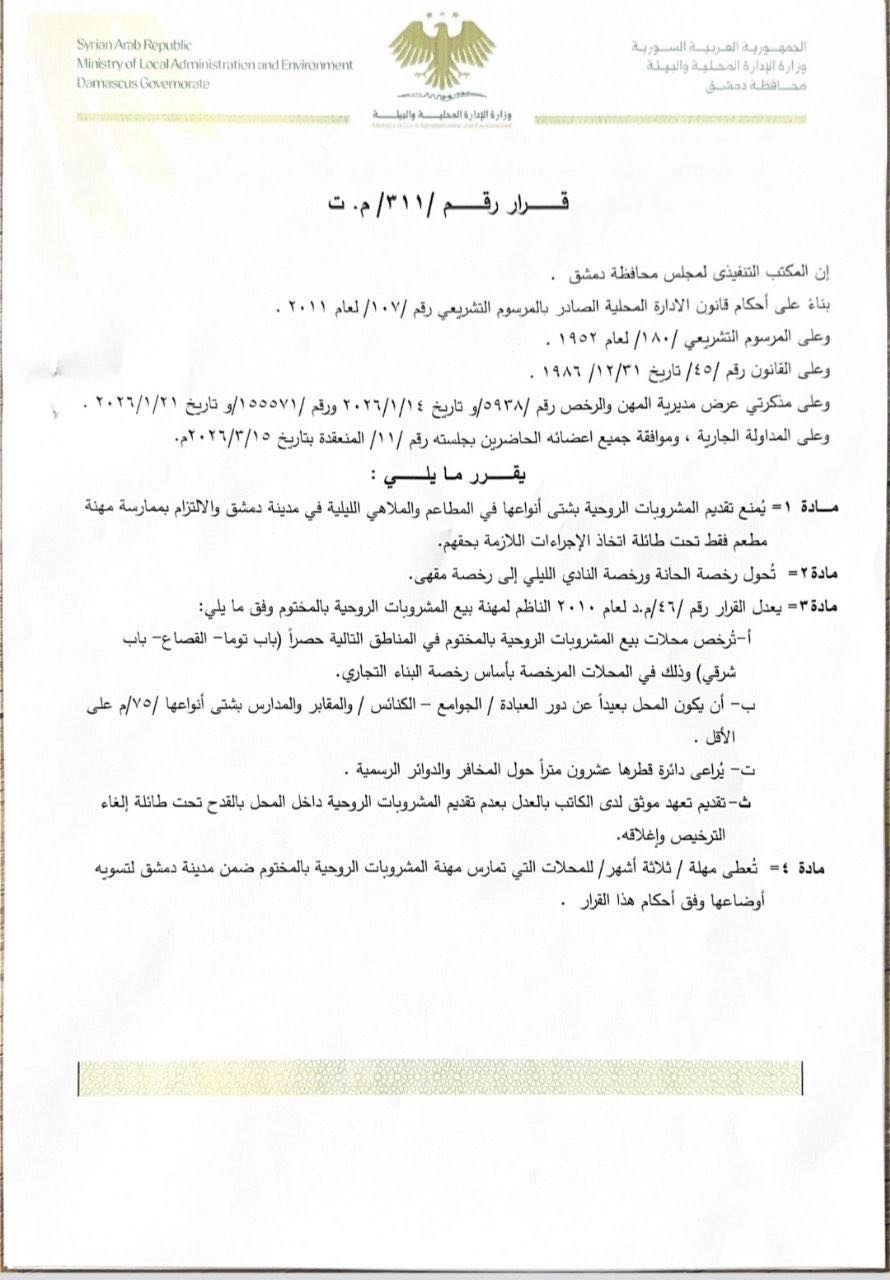 Syrian Arab Republic
Ministry of Local Administration and Environment
Damascus Governorate
الجمهورية العربية السورية
وزارة الإدارة المحلية والبيئة
محافظة دمشق
وزارة الإدارة المحلية والبيئة
قرار رقم /٣١١/ م. ت
إن المكتب التنفيذي لمجلس محافظة دمشق .
بناءً على أحكام قانون الادارة المحلية الصادر بالمرسوم التشريعي رقم /١٠٧/ لعام ٢٠١١ .
وعلى المرسوم التشريعي /١٨٠/ لعام ١٩٥٢ .
وعلى القانون رقم /٤٥/ تاريخ ١٢/٣١/ ١٩٨٦ .
وعلى مذكرتي عرض مديرية المهن والرخص رقم /٥٩٣٨/و تاريخ ٢٠٢٦/١/١٤ ورقم /١٥٥٥٧١/و تاريخ ٢٠٢٦/١/٢١ .
وعلى المداولة الجارية ، وموافقة جميع اعضائه الحاضرين بجلسته رقم /١١/ المنعقدة بتاريخ ٢٠٢٦/٣/١٥م.
يقرر ما يلي :
مادة ١= يُمنع تقديم المشروبات الروحية بشتى أنواعها في المطاعم والملاهي الليلية في مدينة دمشق والالتزام بممارسة مهنة
مطعم فقط تحت طائلة اتخاذ الإجراءات اللازمة بحقهم.
مادة ٢= تُحول رخصة الحانة ورخصة النادي الليلي إلى رخصة مقهى.
مادة ٣= يعدل القرار رقم /٤٦/م.د لعام ٢٠١٠ الناظم لمهنة بيع المشروبات الروحية بالمختوم وفق ما يلي:
أ-تُرخص محلات بيع المشروبات الروحية بالمختوم في المناطق التالية حصراً (باب توما- القصاع- باب
شرقي) وذلك في المحلات المرخصة بأساس رخصة البناء التجاري.
ب- أن يكون المحل بعيداً عن دور العبادة / الجوامع – الكنائس / والمقابر والمدارس بشتى أنواعها /٧٥/م على
الأقل .
ت- يُراعى دائرة قطرها عشرون متراً حول المخافر والدوائر الرسمية .
ث-تقديم تعهد موثق لدى الكاتب بالعدل بعدم تقديم المشروبات الروحية داخل المحل بالقدح تحت طائلة إلغاء
الترخيص وإغلاقه.
مادة ٤= تُعطى مهلة / ثلاثة أشهر/ للمحلات التي تمارس مهنة المشروبات الروحية بالمختوم ضمن مدينة دمشق لتسويه
أوضاعها وفق أحكام هذا القرار .